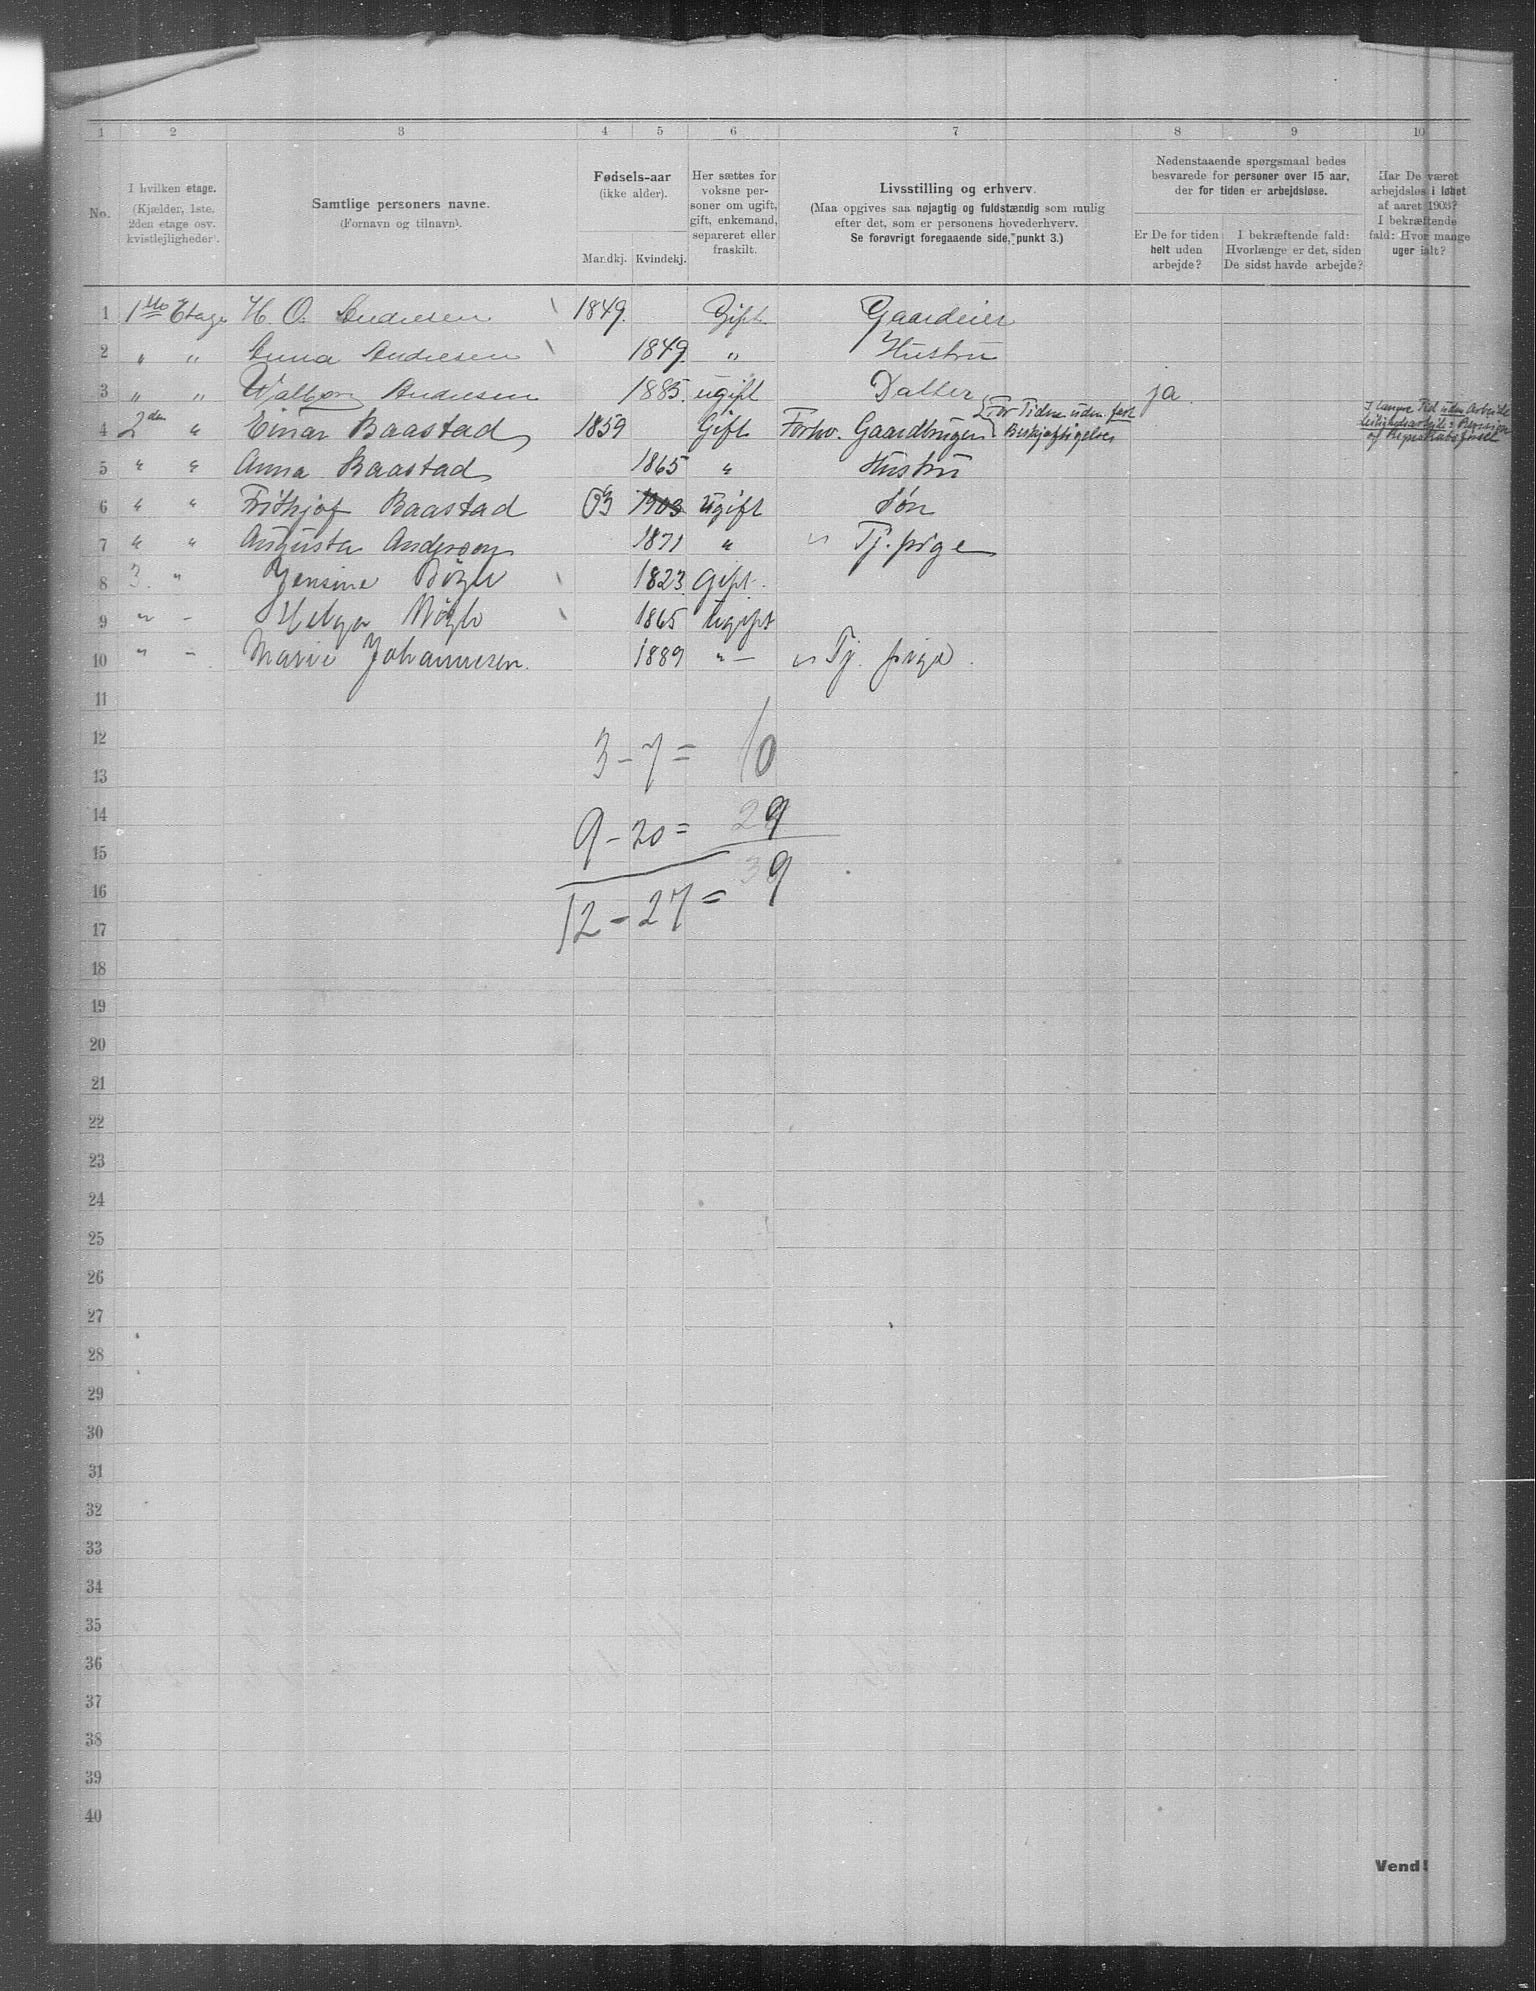 1 2 3 4 5 6 7 8 9 10
No.
I hvilken etage.
(Kjælder, 1ste,
2den etage osv.
kvistlejligheder).
Samtlige personers navne.
(Fornavn og tilnavn).
Fødsels-aar
(ikke alder).
Mandkj. Kvindekj.
Her sættes for
voksne per-
soner om ugift,
gift, enkemand,
separeret eller
fraskilt.
Livsstilling og erhverv.
(Maa opgives saa nøjagtig og fuldstændig som mulig
efter det, som er personens hovederhverv.
Se forøvrigt foregaaende side, punkt 3.)
Nedenstaaende spørgsmaal bedes
besvarede for personer over 15 aar,
der for tiden er arbejdsløse.
Er De for tiden
helt uden
arbejde?
I bekræftende fald:
Hvorlænge er det, siden
De sidst havde arbejde?
Har De været
arbejdsløs i løbet
af aaret 1903?
I bekræftende
fald: Hvor mange
uger ialt?
1 1ste Etage H. O. Andresen 1849. Gift Gaardeier
2 " " Anna Andresen 1849. " Hustru
3 " " Walborg Andresen 1885. ugift Datter ja.
4 2den " Einar Baastad 1859 Gift Forhv. Gaardbruger { For Tiden uden fast Beskjæftigelse
5 " " Anna Baastad 1865 " Hustru
6 " " Frithjof Baastad 03 1903 ugift Søn
7 " " Augusta Anderson 1871 " Tj. pige
8 3. " Jensine 1823 Gift.
9 " - Helga 1865 Ugift
10 " - Marie Johannesen. 1889 " - Tj. pige.
11
12
3 - 7 = 10
13
14
9 - 20 = 29
15
16
12 - 27 = 39
17
18
19
20
21
22
23
24
25
26
27
28
29
30
31
32
33
34
35
36
37
38
39
40
Vend!